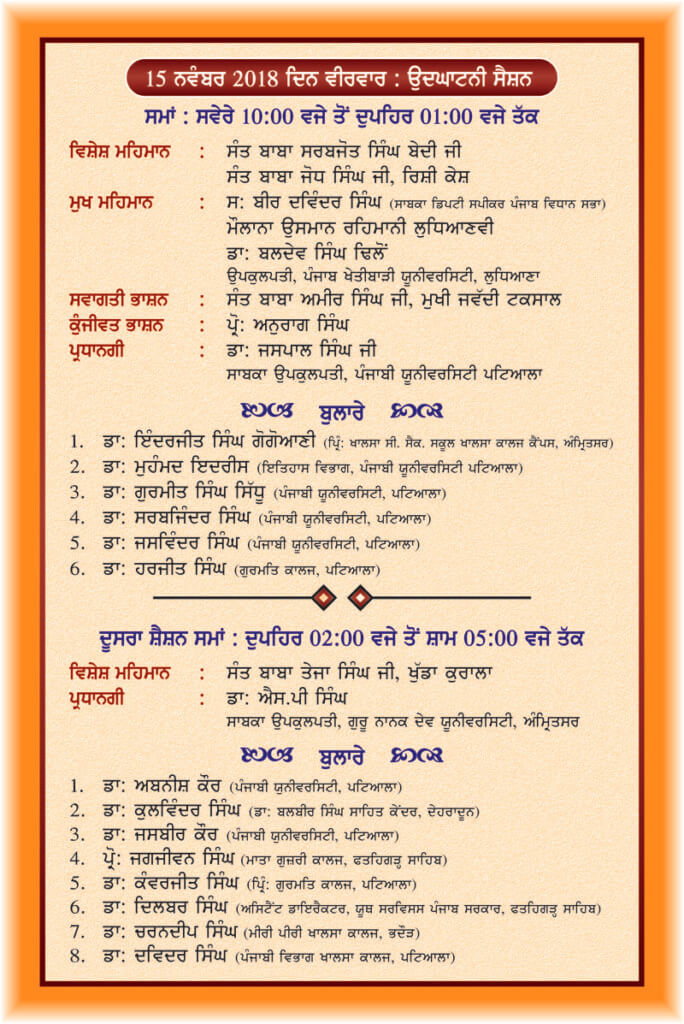 15 ਨਵੰਬਰ 2018 ਦਿਨ ਵੀਰਵਾਰ : ਉਦਘਾਟਨੀ ਸੈਸ਼ਨ
ਸਮਾਂ : ਸਵੇਰੇ 10:00 ਵਜੇ ਤੋਂ ਦੁਪਹਿਰ 01:00 ਵਜੇ ਤੱਕ
ਵਿਸ਼ੇਸ਼ ਮਹਿਮਾਨ : ਸੰਤ ਬਾਬਾ ਸਰਬਜੋਤ ਸਿੰਘ ਬੇਦੀ ਜੀ
ਸੰਤ ਬਾਬਾ ਜੋਧ ਸਿੰਘ ਜੀ, ਰਿਸ਼ੀ ਕੇਸ਼
ਮੁਖ ਮਹਿਮਾਨ : ਸ: ਬੀਰ ਦਵਿੰਦਰ ਸਿੰਘ (ਸਾਬਕਾ ਡਿਪਟੀ ਸਪੀਕਰ ਪੰਜਾਬ ਵਿਧਾਨ ਸਭਾ)
ਮੌਲਾਨਾ ਉਸਮਾਨ ਰਹਿਮਾਨੀ ਲੁਧਿਆਣਵੀ
ਡਾ: ਬਲਦੇਵ ਸਿੰਘ ਢਿਲੋਂ
ਉਪਕੁਲਪਤੀ, ਪੰਜਾਬ ਖੇਤੀਬਾੜੀ ਯੂਨੀਵਰਸਿਟੀ, ਲੁਧਿਆਣਾ
ਸਵਾਗਤੀ ਭਾਸ਼ਨ : ਸੰਤ ਬਾਬਾ ਅਮੀਰ ਸਿੰਘ ਜੀ, ਮੁਖੀ ਜਵੱਦੀ ਟਕਸਾਲ
ਕੁੰਜੀਵਤ ਭਾਸ਼ਨ : ਪ੍ਰੋ: ਅਨੁਰਾਗ ਸਿੰਘ
ਪ੍ਰਧਾਨਗੀ : ਡਾ: ਜਸਪਾਲ ਸਿੰਘ ਜੀ
ਸਾਬਕਾ ਉਪਕੁਲਪਤੀ, ਪੰਜਾਬੀ ਯੂਨੀਵਰਸਿਟੀ ਪਟਿਆਲਾ
ਬੁਲਾਰੇ
1. ਡਾ: ਇੰਦਰਜੀਤ ਸਿੰਘ ਗੋਗੋਆਣੀ (ਪ੍ਰਿੰ: ਖਾਲਸਾ ਸੀ. ਸੈਕ. ਸਕੂਲ ਖਾਲਸਾ ਕਾਲਜ ਕੈਂਪਸ, ਅੰਮ੍ਰਿਤਸਰ)
2. ਡਾ: ਮੁਹੰਮਦ ਇਦਰੀਸ (ਇਤਿਹਾਸ ਵਿਭਾਗ, ਪੰਜਾਬੀ ਯੂਨੀਵਰਸਿਟੀ ਪਟਿਆਲਾ)
3. ਡਾ: ਗੁਰਮੀਤ ਸਿੰਘ ਸਿੱਧੂ (ਪੰਜਾਬੀ ਯੂਨੀਵਰਸਿਟੀ, ਪਟਿਆਲਾ)
4. ਡਾ: ਸਰਬਜਿੰਦਰ ਸਿੰਘ (ਪੰਜਾਬੀ ਯੂਨੀਵਰਸਿਟੀ, ਪਟਿਆਲਾ)
5. ਡਾ: ਜਸਵਿੰਦਰ ਸਿੰਘ (ਪੰਜਾਬੀ ਯੂਨੀਵਰਸਿਟੀ, ਪਟਿਆਲਾ)
6. ਡਾ: ਹਰਜੀਤ ਸਿੰਘ (ਗੁਰਮਤਿ ਕਾਲਜ, ਪਟਿਆਲਾ)
ਦੂਸਰਾ ਸ਼ੈਸ਼ਨ ਸਮਾਂ : ਦੁਪਹਿਰ 02:00 ਵਜੇ ਤੋਂ ਸ਼ਾਮ 05:00 ਵਜੇ ਤੱਕ
ਵਿਸ਼ੇਸ਼ ਮਹਿਮਾਨ : ਸੰਤ ਬਾਬਾ ਤੇਜਾ ਸਿੰਘ ਜੀ, ਖੁੱਡਾ ਕੁਰਾਲਾ
ਪ੍ਰਧਾਨਗੀ : ਡਾ: ਐਸ.ਪੀ ਸਿੰਘ
ਸਾਬਕਾ ਉਪਕੁਲਪਤੀ, ਗੁਰੂ ਨਾਨਕ ਦੇਵ ਯੂਨੀਵਰਸਿਟੀ, ਅੰਮ੍ਰਿਤਸਰ
ਬੁਲਾਰੇ
1. ਡਾ: ਅਬਨੀਸ਼ ਕੌਰ (ਪੰਜਾਬੀ ਯੁਨੀਵਰਸਿਟੀ, ਪਟਿਆਲਾ)
2. ਡਾ: ਕੁਲਵਿੰਦਰ ਸਿੰਘ (ਡਾ: ਬਲਬੀਰ ਸਿੰਘ ਸਾਹਿਤ ਕੇਂਦਰ, ਦੇਹਰਾਦੂਨ)
3. ਡਾ: ਜਸਬੀਰ ਕੌਰ (ਪੰਜਾਬੀ ਯੁਨੀਵਰਸਿਟੀ, ਪਟਿਆਲਾ)
4. ਪ੍ਰੋ: ਜਗਜੀਵਨ ਸਿੰਘ (ਮਾਤਾ ਗੁਜ਼ਰੀ ਕਾਲਜ, ਫਤਹਿਗੜ੍ਹ ਸਾਹਿਬ)
5. ਡਾ: ਕੰਵਰਜੀਤ ਸਿੰਘ (ਪ੍ਰਿੰ: ਗੁਰਮਤਿ ਕਾਲਜ, ਪਟਿਆਲਾ)
6. ਡਾ: ਦਿਲਬਰ ਸਿੰਘ (ਅਸਿਟੈਂਟ ਡਾਇਰੈਕਟਰ, ਯੂਥ ਸਰਵਿਸਸ ਪੰਜਾਬ ਸਰਕਾਰ, ਫਤਹਿਗੜ੍ਹ ਸਾਹਿਬ)
7. ਡਾ: ਚਰਨਦੀਪ ਸਿੰਘ (ਮੀਰੀ ਪੀਰੀ ਖਾਲਸਾ ਕਾਲਜ, ਭਦੌੜ)
8. ਡਾ: ਦਵਿਦਰ ਸਿੰਘ (ਪੰਜਾਬੀ ਵਿਭਾਗ ਖਾਲਸਾ ਕਾਲਜ, ਪਟਿਆਲਾ)